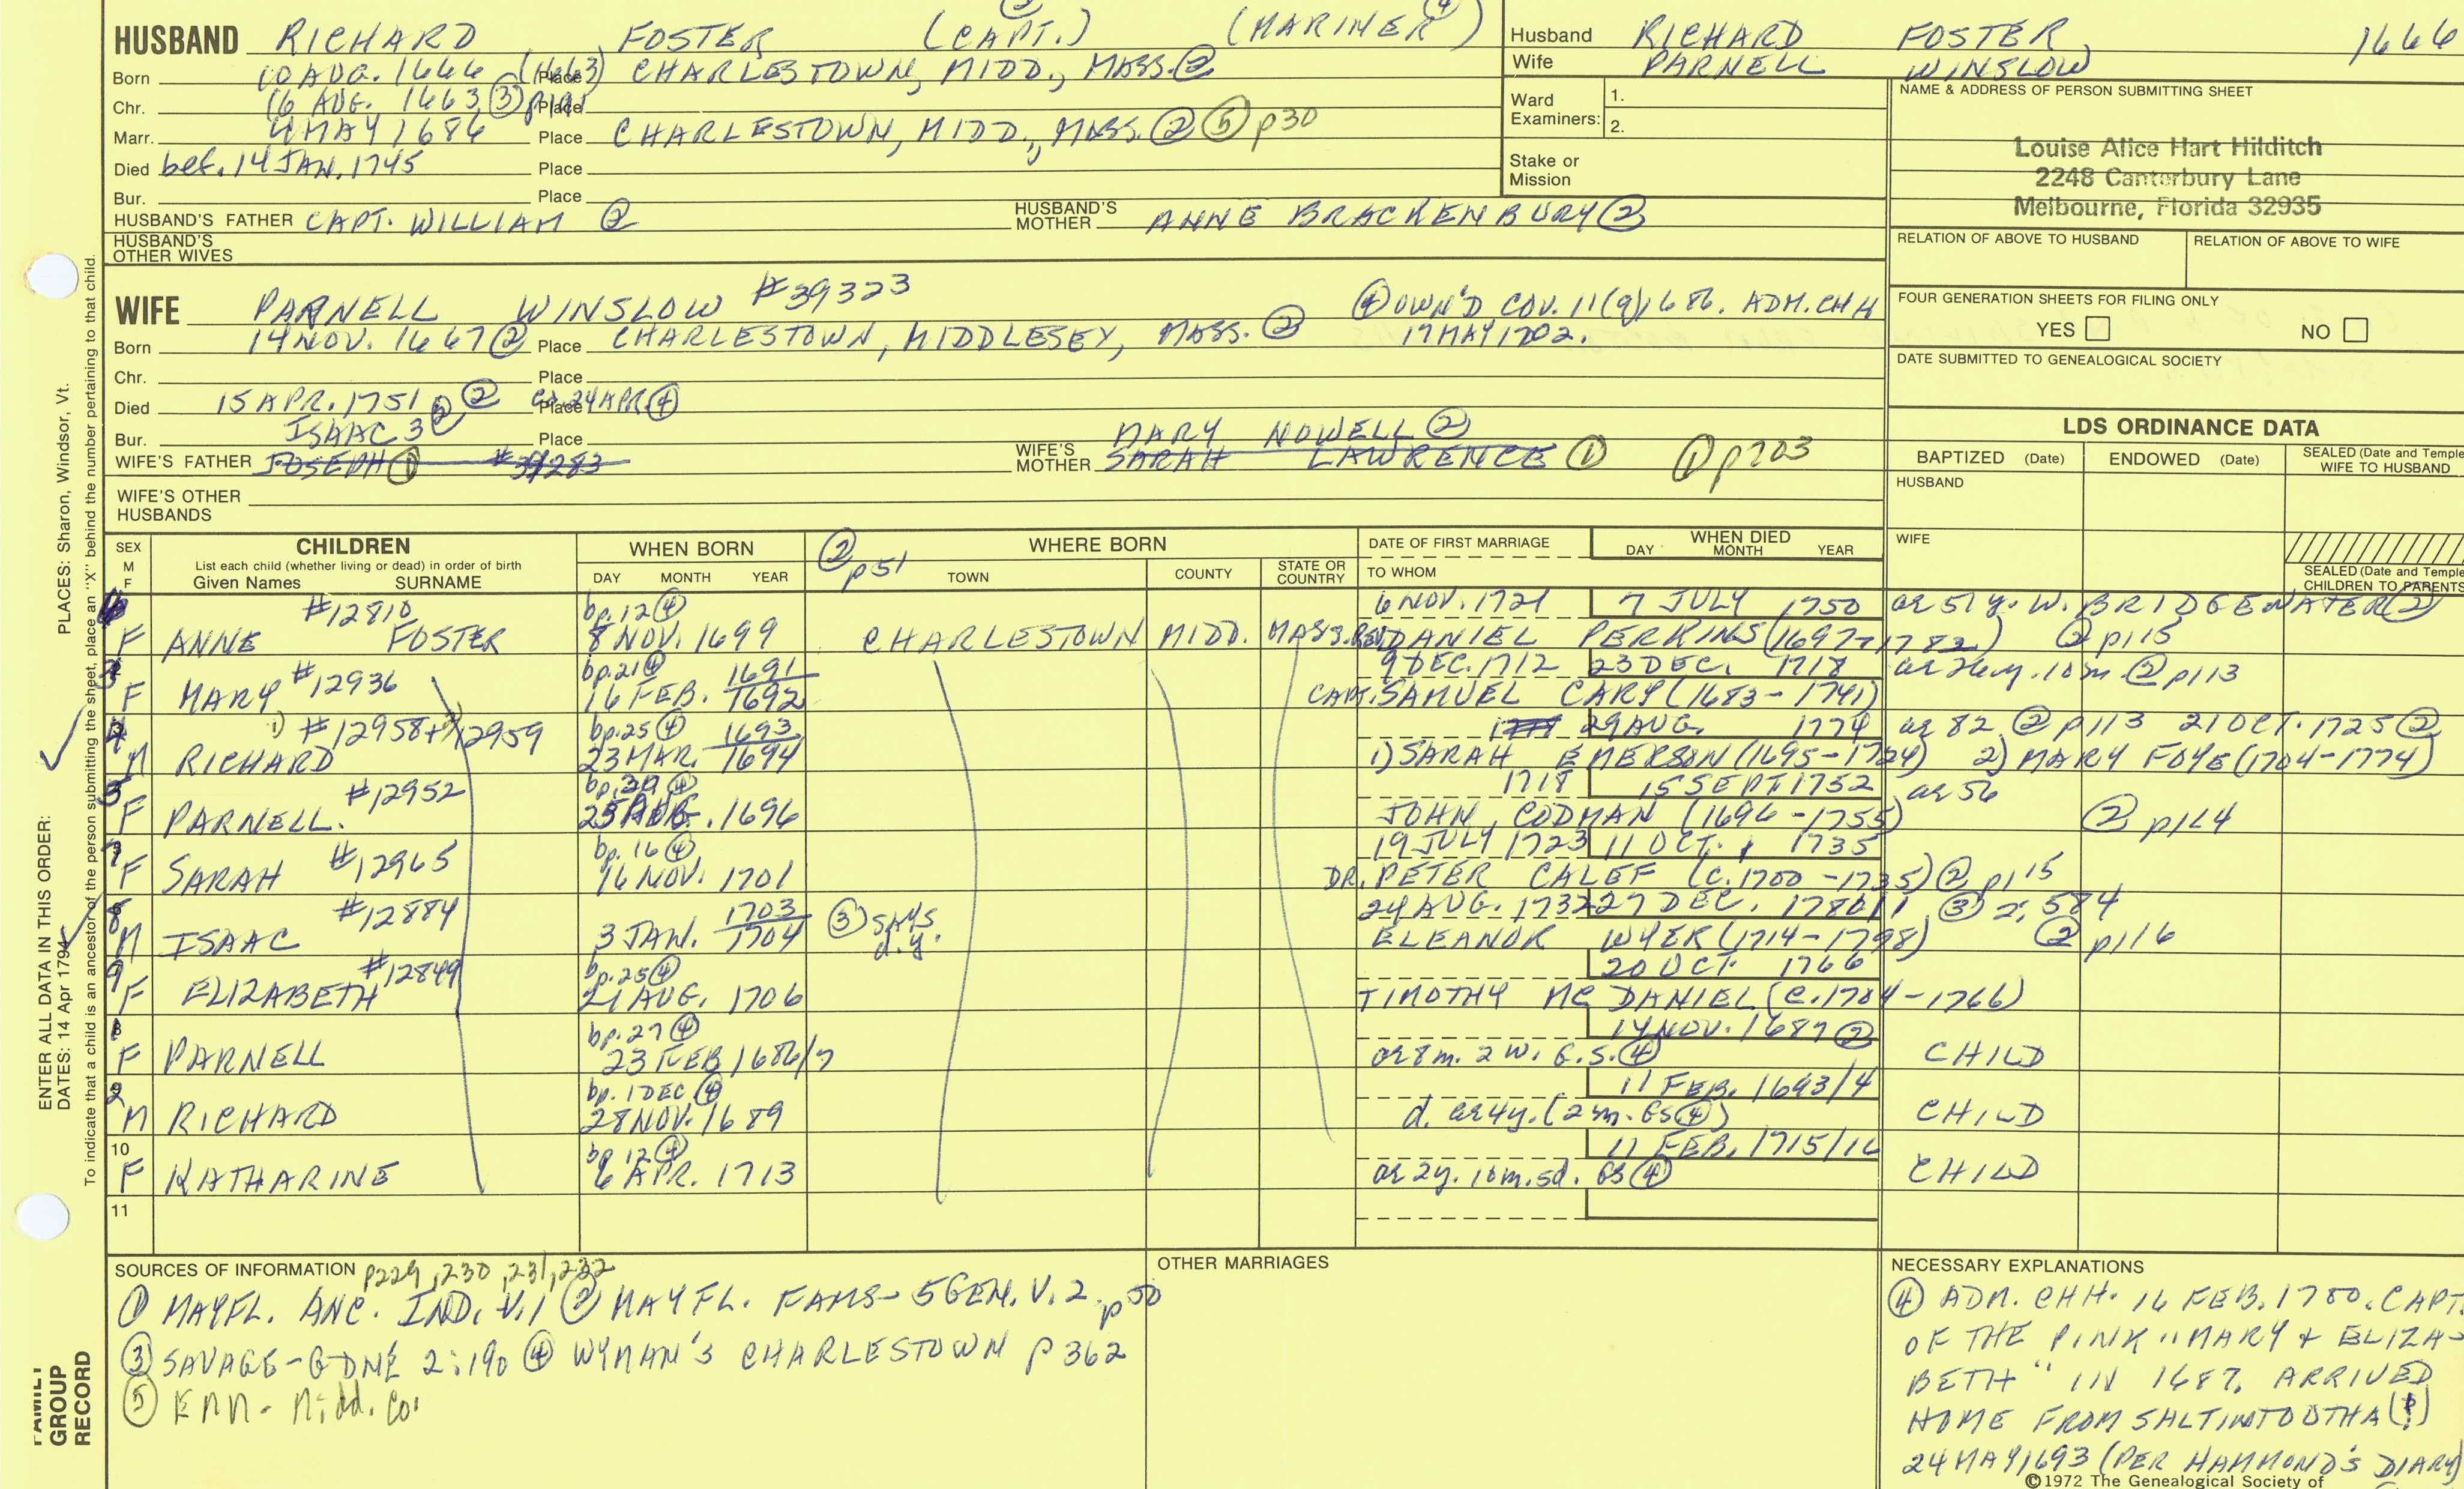 HUSBAND RICHARD FOSTER (CAPT.) (MARINER ④)
Born 10 AUG. 1666 (1663) Place CHARLESTOWN, MIDD., MASS. ②
Chr. 16 AUG. 1663 ③ p191 Place
Marr. 4 MAY 1686 Place CHARLESTOWN, MIDD., MASS. ② ⑤ p30
Died bef. 14 JAN. 1745 Place
Bur. Place
HUSBAND'S FATHER CAPT. WILLIAM ② HUSBAND'S MOTHER ANNE BRACKENBURY ②
HUSBAND'S OTHER WIVES
Husband RICHARD FOSTER, 1666
Wife PARNELL WINSLOW
Ward Examiners: 1.
2.
Stake or Mission
NAME & ADDRESS OF PERSON SUBMITTING SHEET
Louise Alice Hart Hilditch
2248 Canterbury Lane
Melbourne, Florida 32935
RELATION OF ABOVE TO HUSBAND RELATION OF ABOVE TO WIFE
FOUR GENERATION SHEETS FOR FILING ONLY
YES NO
DATE SUBMITTED TO GENEALOGICAL SOCIETY
WIFE PARNELL WINSLOW #39323 ④ OWN'D COV. 11(9)1686. ADM. CHH
17 MAY 1702.
Born 14 NOV. 1667 ② Place CHARLESTOWN, MIDDLESEY, MASS. ②
Chr. Place
Died 15 APR. 1751 ② Place 24 APR. ④
Bur. Place
ISAAC 3 ② MARY NOWELL ②
WIFE'S FATHER JOSEPH ① #39283 WIFE'S MOTHER SARAH LAWRENCE ① ① p703
WIFE'S OTHER HUSBANDS
LDS ORDINANCE DATA
BAPTIZED (Date) ENDOWED (Date) SEALED (Date and Temple WIFE TO HUSBAND
HUSBAND
WIFE
SEALED (Date and Temple CHILDREN TO PARENTS
SEX M F CHILDREN
List each child (whether living or dead) in order of birth
Given Names SURNAME
WHEN BORN DAY MONTH YEAR
② p51 WHERE BORN TOWN COUNTY STATE OR COUNTRY
DATE OF FIRST MARRIAGE TO WHOM
WHEN DIED DAY MONTH YEAR
#12810 bp. 12 ④ 6 NOV. 1721 7 JULY 1750 ae 51 y. W. BRIDGEWATER ②
6 F ANNE FOSTER 8 NOV. 1699 CHARLESTOWN MIDD. MASS. REV. DANIEL PERKINS (1697-1782) ② p115
#12936 bp. 21 ④ 1691 9 DEC. 1712 23 DEC. 1718 ae 26y. 10m ② p113
3 F MARY 16 FEB. 1692 CAPT. SAMUEL CARY (1683-1741)
1) #12958+ 2) 12959 bp. 25 ④ 1693 29 AUG. 1774 ae 82 ② p113 21 OCT. 1725 ②
4 M RICHARD 23 MAR. 1694 1) SARAH EMERSON (1695-1724) 2) MARY FOYE (1704-1774)
#12952 bp. 30 ④ 1718 15 SEPT. 1752 ae 56
5 F PARNELL. 25 AUG. 1696 JOHN CODMAN (1696-1755) ② p114
#12965 bp. 16 ④ 19 JULY 1723 11 OCT. 1735
7 F SARAH 16 NOV. 1701 DR. PETER CALEF (C. 1700-1735) ② p115
#12884 1703 ③ SAYS d.y. 24 AUG. 1732 27 DEC. 1780/1 ③ 2:584
8 M ISAAC 3 JAN. 1704 ELEANOR WYER (1714-1798) ② p116
#12849 bp. 25 ④ 20 OCT. 1766
9 F ELIZABETH 21 AUG. 1706 TIMOTHY MC DANIEL (C. 1704-1766)
bp. 27 ④ 14 NOV. 1687 ②
1 F PARNELL 23 FEB 1686/7 ae 8m. 2w. G.S. ④ CHILD
bp. 1 DEC ④ 11 FEB. 1693/4
2 M RICHARD 28 NOV. 1689 d. ae 4y. (2m. GS ④) CHILD
bp 12 ④ 11 FEB. 1715/16
10 F KATHARINE 6 APR. 1713 ae 2y. 10m. 5d. GS ④ CHILD
11
SOURCES OF INFORMATION p229, 230, 231, 232
① MAYFL. ANC. IND. V. 1 ② MAYFL. FAMS - 5 GEN. V. 2. p50
③ SAVAGE - GDNE 2:190 ④ WYMAN'S CHARLESTOWN p 362
⑤ Midd. Co.
OTHER MARRIAGES
NECESSARY EXPLANATIONS
④ ADM. CHH. 16 FEB. 1700. CAPT.
OF THE PINK "MARY & ELIZA-
BETH" IN 1687. ARRIVED
HOME FROM
24 MAY 1693 (PER HAMMOND'S DIARY)
©1972 The Genealogical Society of
ENTER ALL DATA IN THIS ORDER:
DATES: 14 Apr 1794
PLACES: Sharon, Windsor, Vt.
To indicate that a child is an ancestor of the person submitting the sheet, place an "X" behind the number pertaining to that child.
FAMILY GROUP RECORD